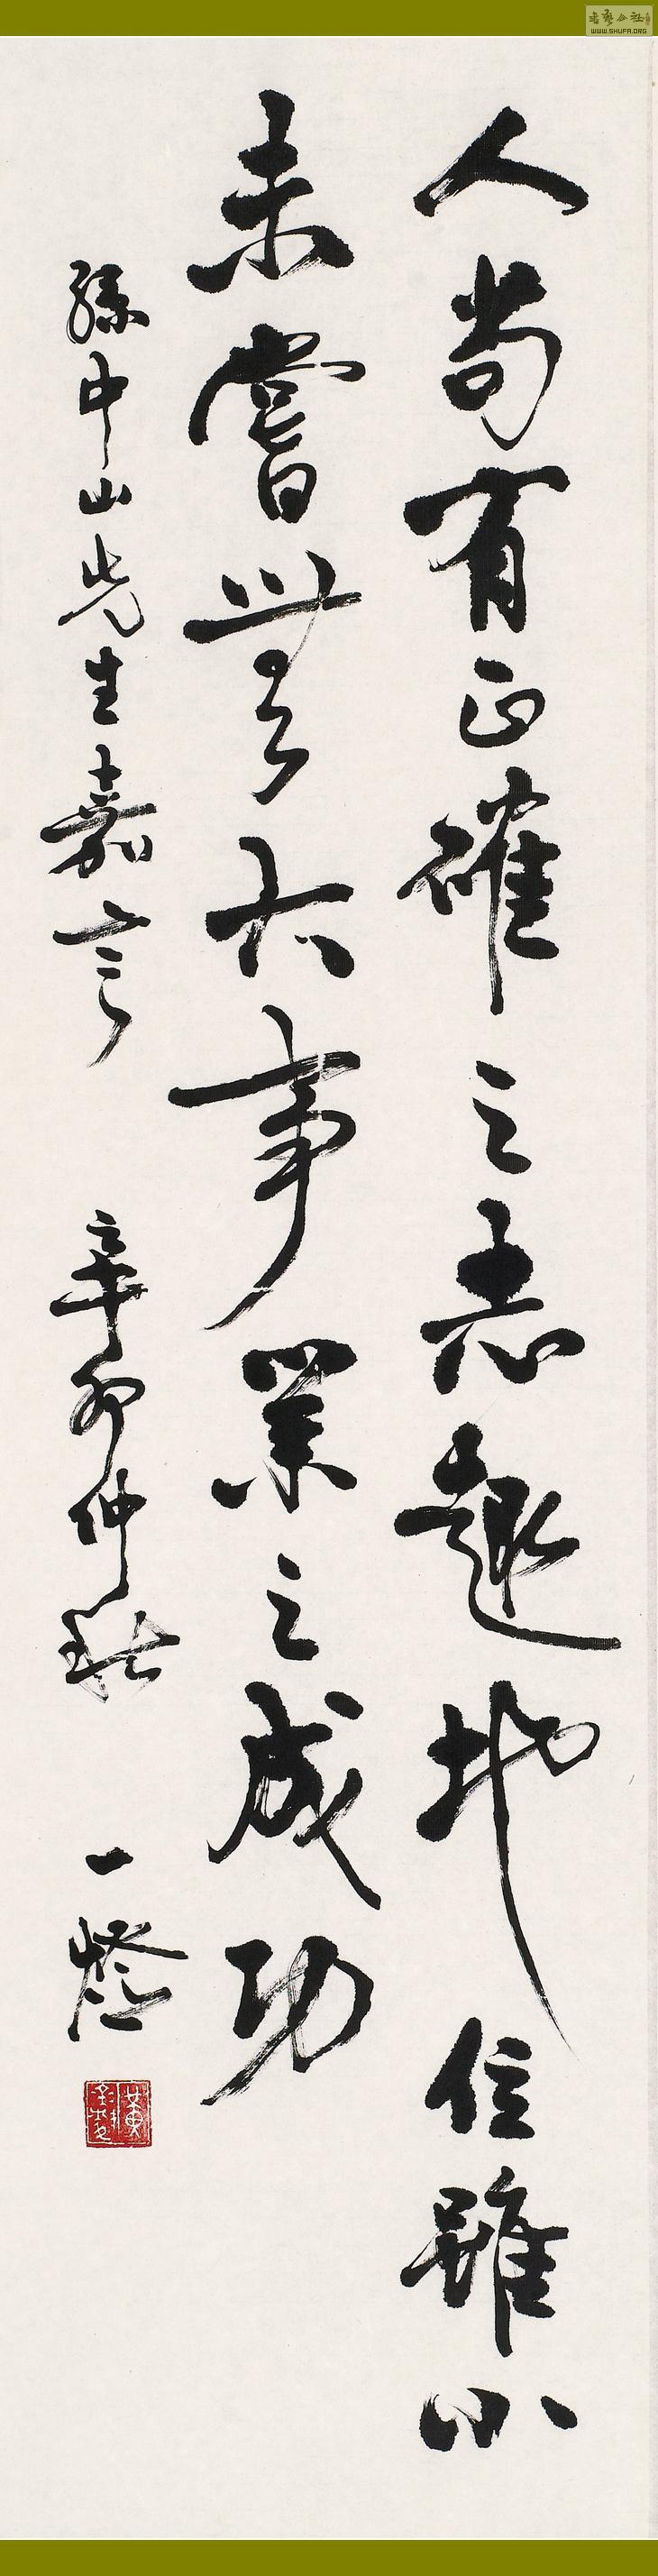 人苟有正確之志趣地位雖小
未嘗無大事業之成功
孫中山先生嘉言　辛卯仲秋　一燈
WWW.SHUFA.ORG